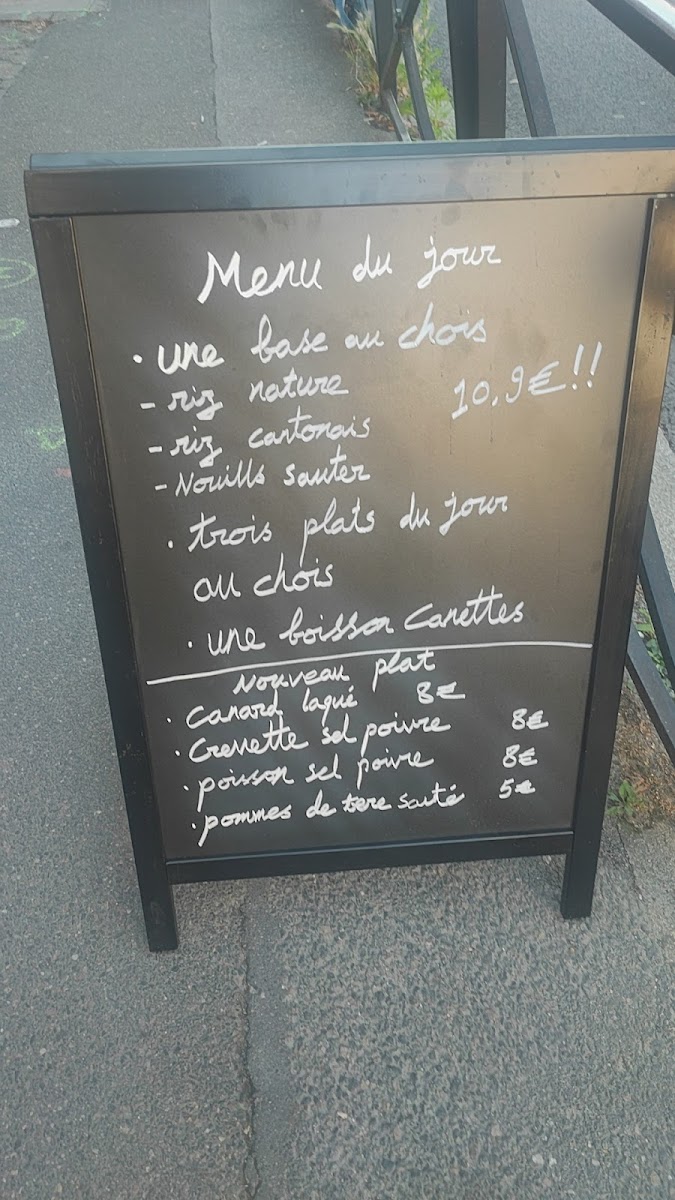 Menu du jour
· une base au chois
- riz nature 10.9€!!
- riz cantonais
- Nouills sauter
· trois plats du jour
au chois
· une boisson Canettes
Nouveau plat
· Canard laqué 8€
· Crevette sel poivre 8€
· poisson sel poivre 8€
· pommes de tere sauté 5€